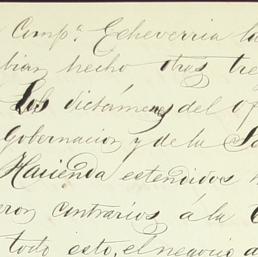 Compª. Echeverria la
bian hecho otras tre
Los dictámenes del of
Gobernacion y de la Se
Hacienda estendidos
eron contrarios á la
todo esto, el negocio a